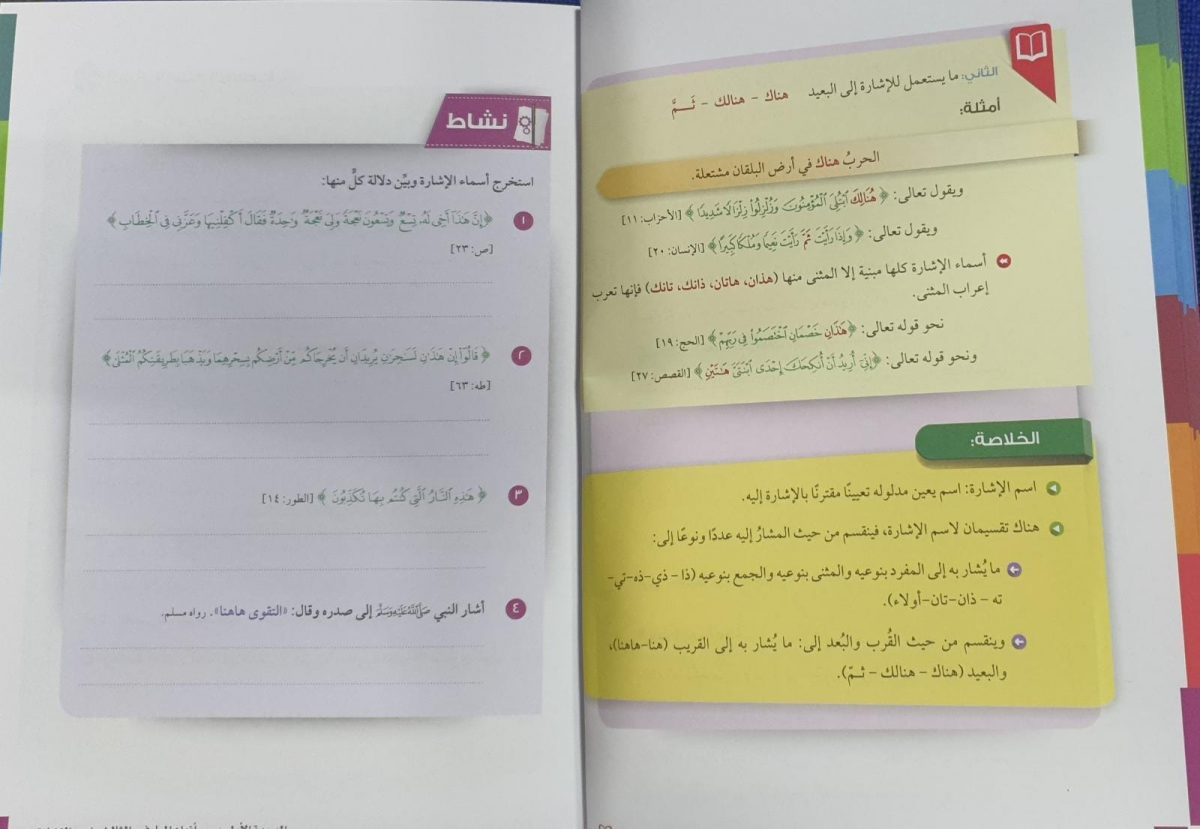 الثاني: ما يستعمل للإشارة إلى البعيد هناك - هنالك - ثَمَّ
أمثلة:
الحربُ هناك في أرض البلقان مشتعلة.
ويقول تعالى: ﴿هُنَالِكَ ٱبْتُلِىَ ٱلْمُؤْمِنُونَ وَزُلْزِلُوا۟ زِلْزَالًا شَدِيدًا﴾ [الأحزاب: ١١]
ويقول تعالى: ﴿وَإِذَا رَأَيْتَ ثَمَّ رَأَيْتَ نَعِيمًا وَمُلْكًا كَبِيرًا﴾ [الإنسان: ٢٠]
أسماء الإشارة كلها مبنية إلا المثنى منها (هذان، هاتان، ذانك، تانك) فإنها تعرب
إعراب المثنى.
نحو قوله تعالى: ﴿هَٰذَانِ خَصْمَانِ ٱخْتَصَمُوا۟ فِى رَبِّهِمْ﴾ [الحج: ١٩]
ونحو قوله تعالى: ﴿إِنِّىٓ أُرِيدُ أَنْ أُنكِحَكَ إِحْدَى ٱبْنَتَىَّ هَٰتَيْنِ﴾ [القصص: ٢٧]
الخلاصة:
اسم الإشارة: اسم يعين مدلوله تعيينًا مقترنًا بالإشارة إليه.
هناك تقسيمان لاسم الإشارة، فينقسم من حيث المشارُ إليه عددًا ونوعًا إلى:
ما يُشار به إلى المفرد بنوعيه والمثنى بنوعيه والجمع بنوعيه (ذا - ذي-ذه-تي-
ته - ذان-تان-أولاء).
وينقسم من حيث القُرب والبُعد إلى: ما يُشار به إلى القريب (هنا-هاهنا)،
والبعيد (هناك - هنالك - ثمّ).
نشاط
استخرج أسماء الإشارة وبيِّن دلالة كلٍّ منها:
١ ﴿إِنَّ هَٰذَآ أَخِى لَهُۥ تِسْعٌ وَتِسْعُونَ نَعْجَةً وَلِىَ نَعْجَةٌ وَٰحِدَةٌ فَقَالَ أَكْفِلْنِيهَا وَعَزَّنِى فِى ٱلْخِطَابِ﴾
[ص: ٢٣]
٢ ﴿قَالُوٓا۟ إِنْ هَٰذَٰنِ لَسَٰحِرَٰنِ يُرِيدَانِ أَن يُخْرِجَاكُم مِّنْ أَرْضِكُم بِسِحْرِهِمَا وَيَذْهَبَا بِطَرِيقَتِكُمُ ٱلْمُثْلَىٰ﴾
[طه: ٦٣]
٣ ﴿هَٰذِهِ ٱلنَّارُ ٱلَّتِى كُنتُم بِهَا تُكَذِّبُونَ﴾ [الطور: ١٤]
٤ أشار النبي ﷺ إلى صدره وقال: «التقوى هاهنا». رواه مسلم.